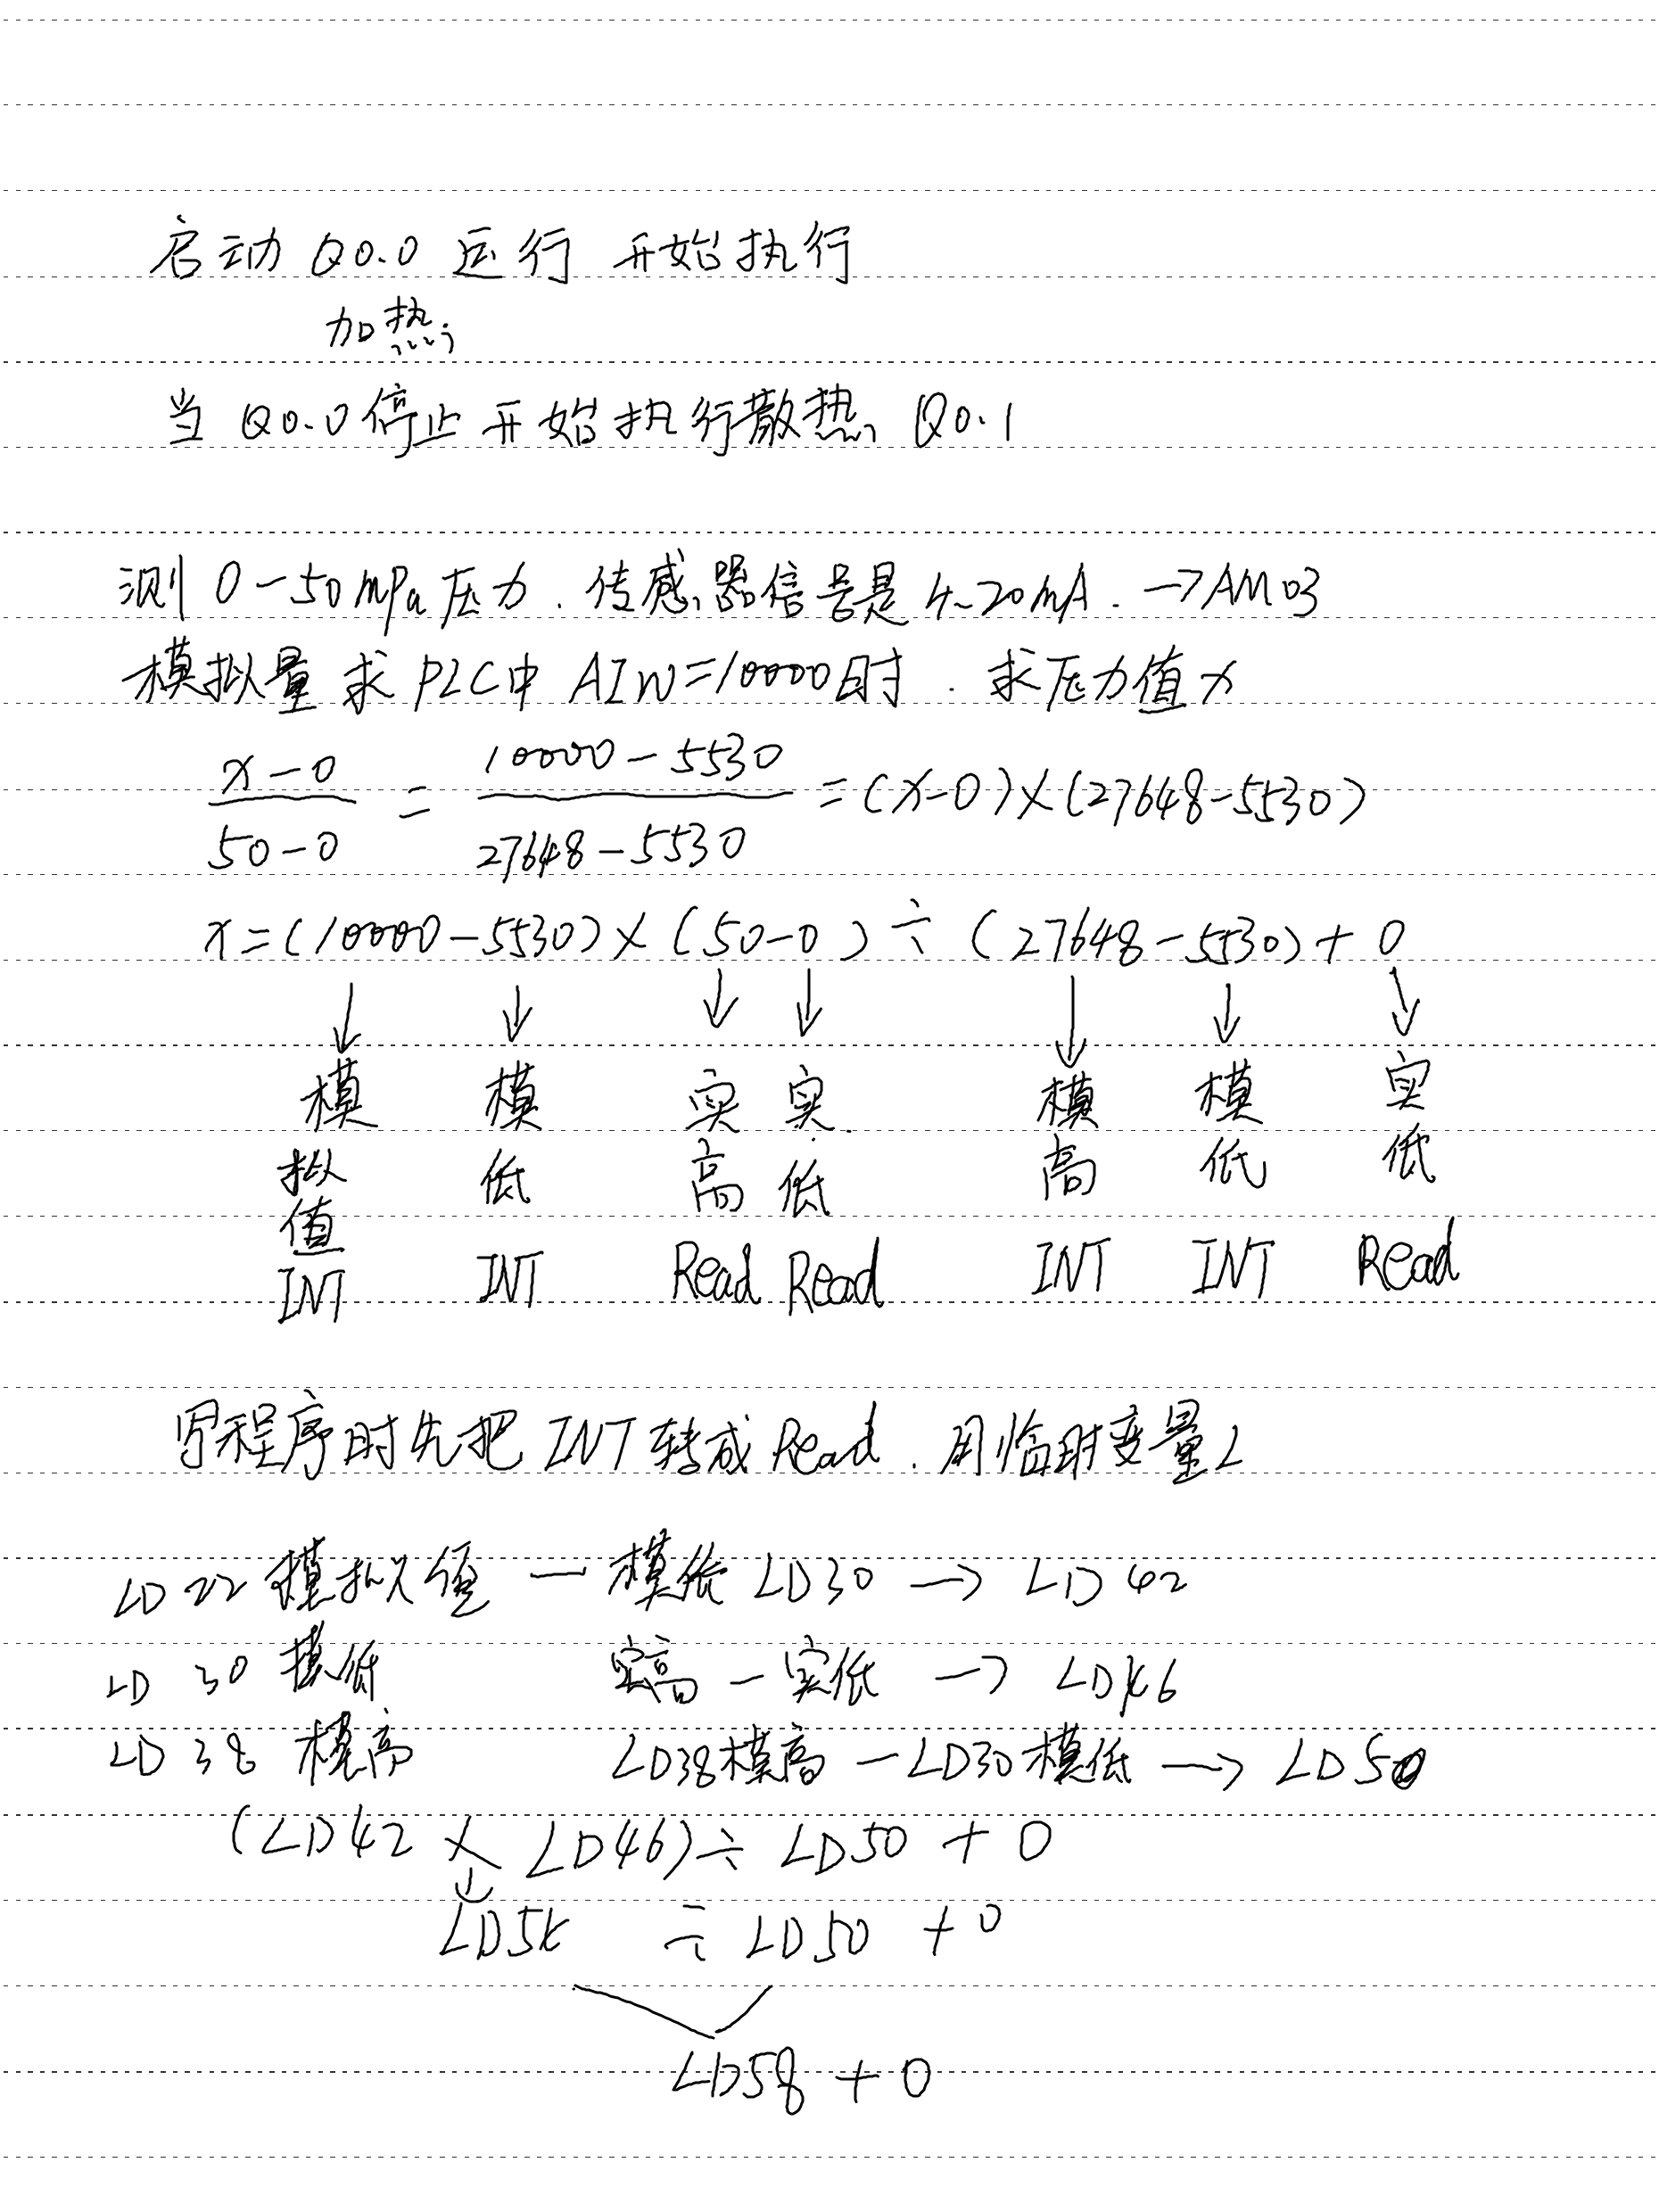 启动 Q0.0 运行 开始执行
加热;
当 Q0.0停止开始执行散热, Q0.1
测 0-50mPa压力. 传感器信号是 4~20mA. →AM03
模拟量求PLC中 AIW=10000时. 求压力值x
x-0/50-0 = 10000-5530/27648-5530 =(x-0)×(27648-5530)
x=(10000-5530)×(50-0)÷(27648-5530)+0
↓ ↓ ↓ ↓ ↓ ↓ ↓
模拟值 模低 实高 实低 模高 模低 实低
INT INT Read Read INT INT Read
写程序时先把 INT转成 Read. 用临时变量L
LD 22 模拟值 - 模低 LD30 → LD 42
LD 30 模低 实高 - 实低 → LD46
LD 38 模高 LD38模高 - LD30模低 → LD50
(LD42 × LD46)÷ LD50 + 0
↓
LD54 ÷ LD50 + 0
LD58 + 0